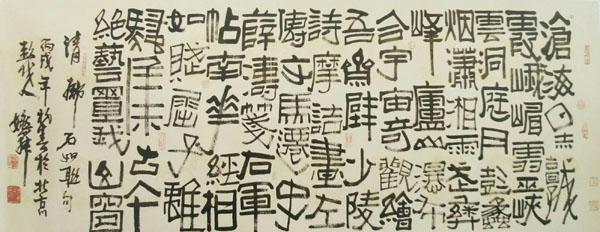 滄海日赤城
霞峨嵋雪巫峽
雲洞庭月彭蠡
烟瀟湘雨武彝
峰廬山瀑布
合宇宙奇觀繪
吾齋壁少陵
詩摩詰畫左
傳文馬遷史
薛濤箋右軍
帖南華經相
如賦屈子離
騷收古今
絕藝置我山窗
清鄧石如聯句
丙戌年書於北京